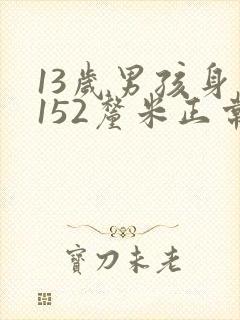 13岁男孩身
152厘米正常
寶刀未老